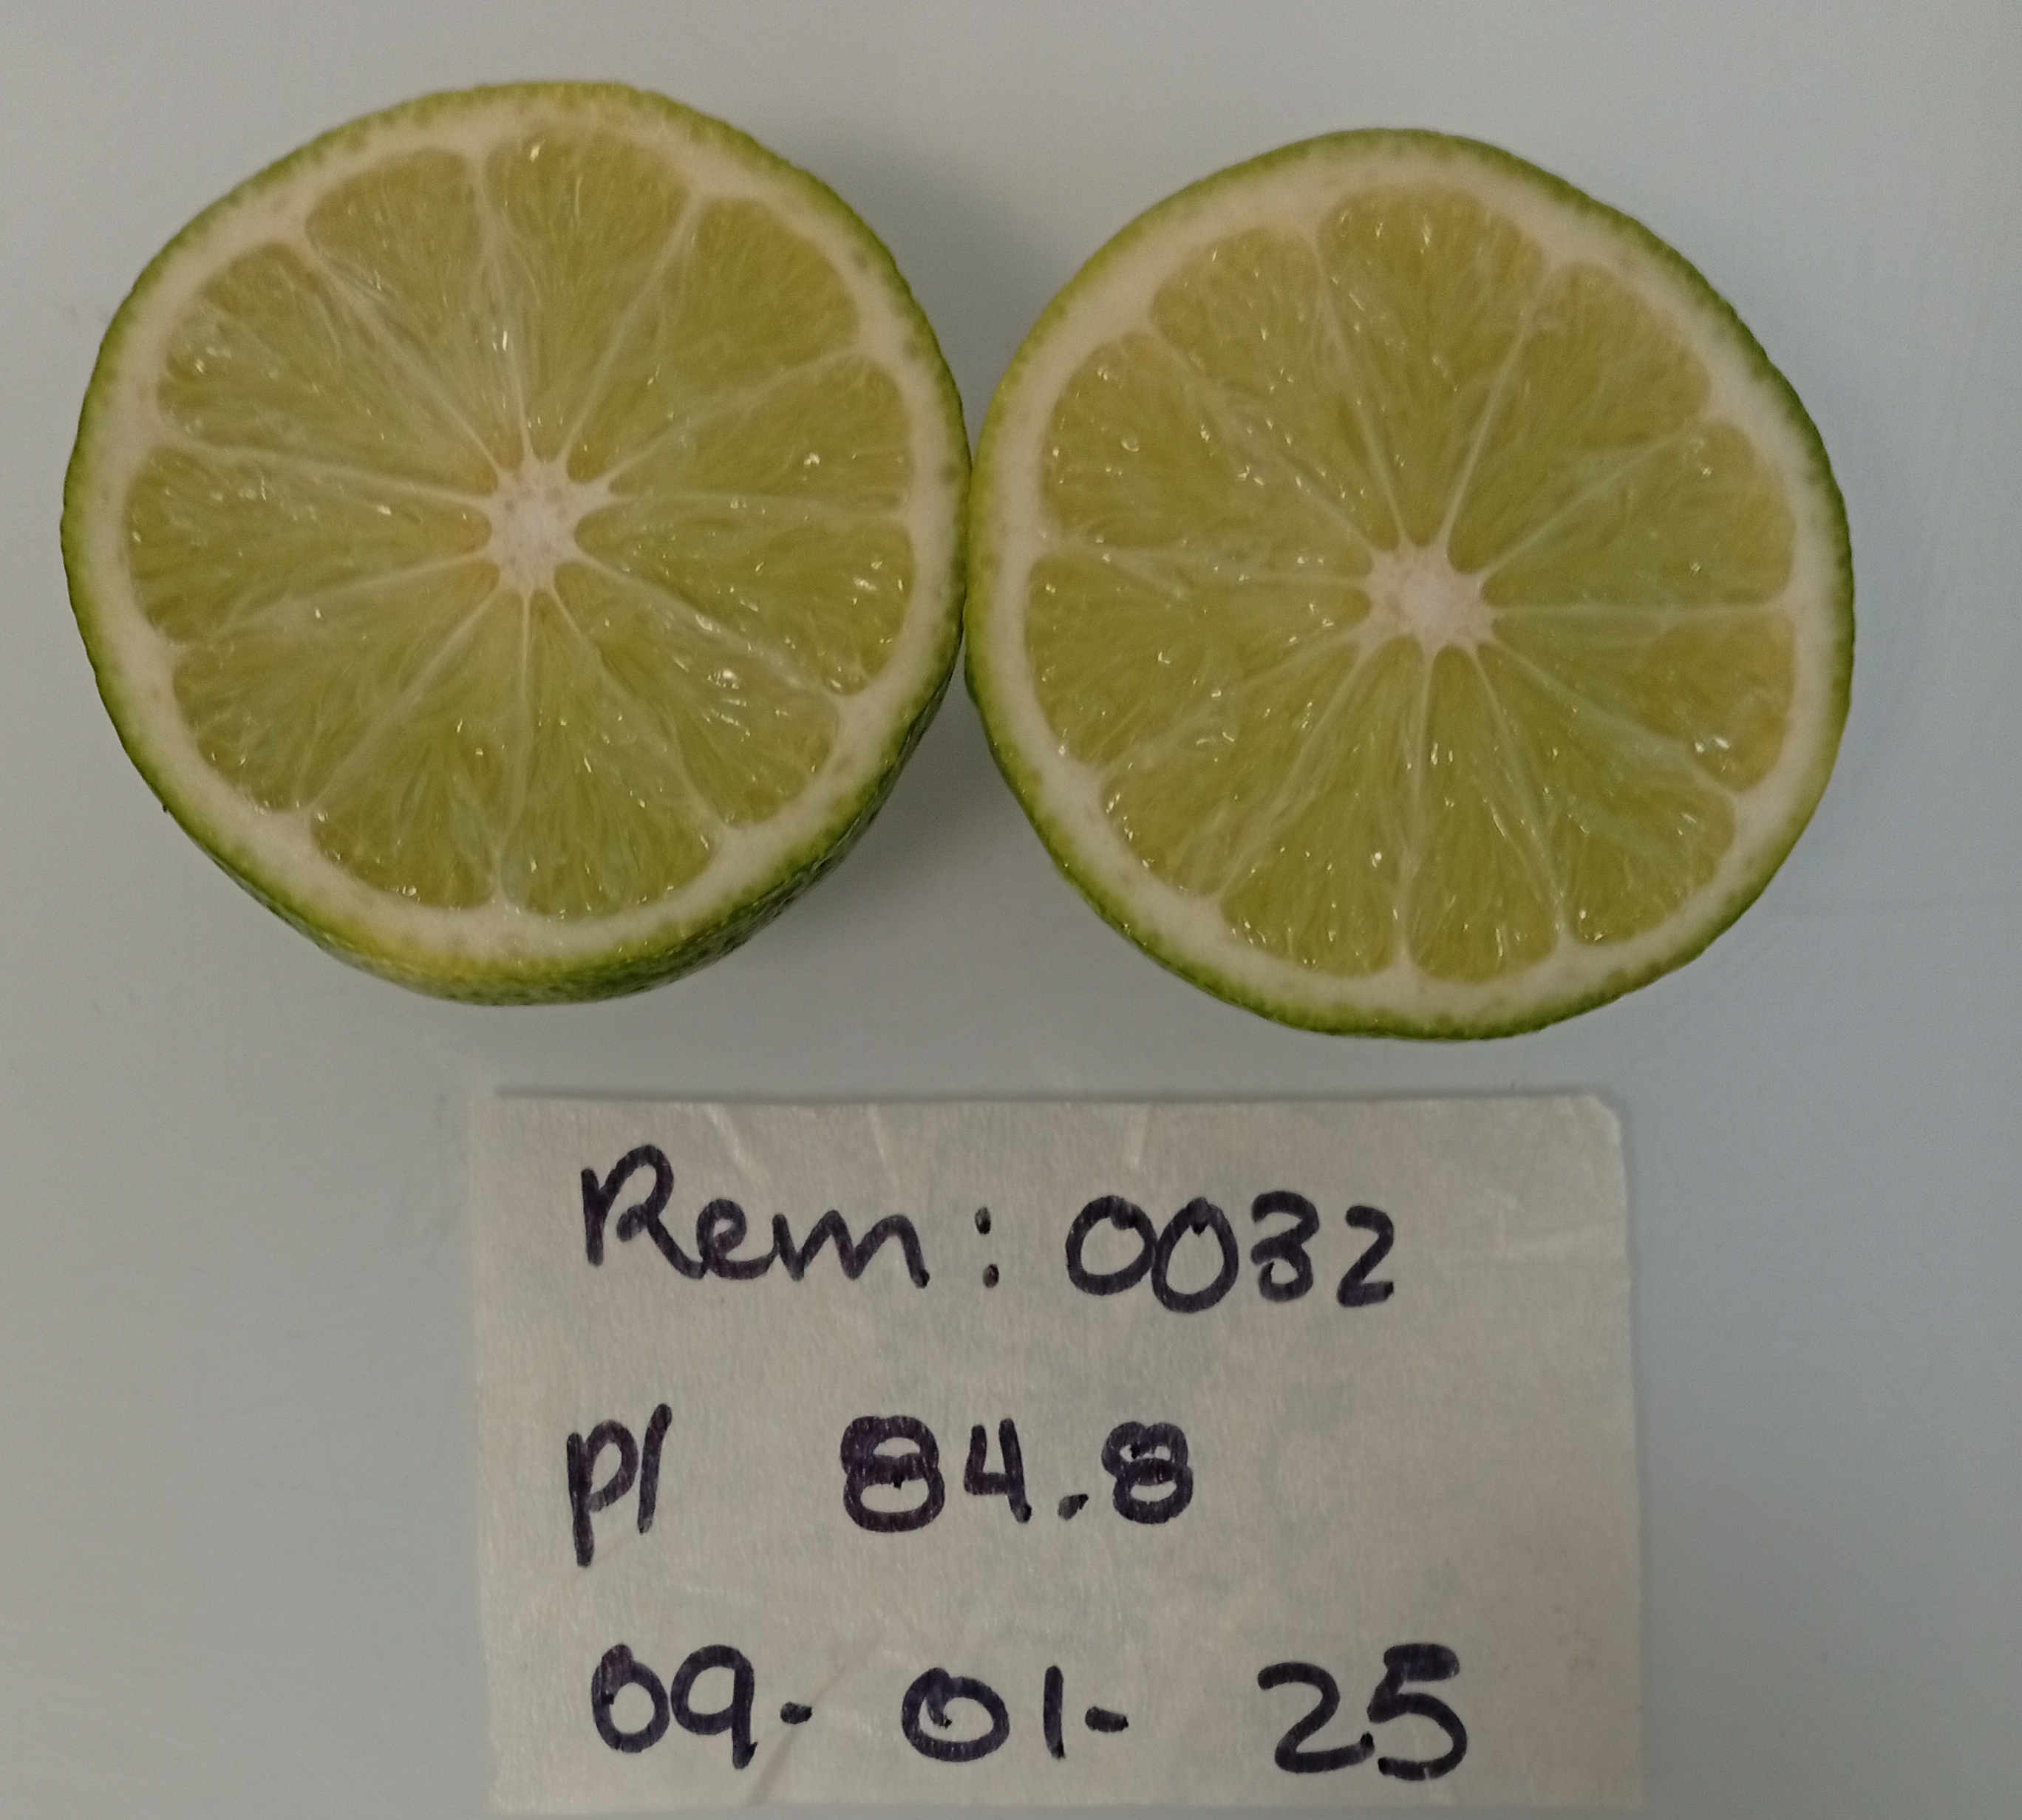 Rem: 0032
P/ 84.8
09-01-25